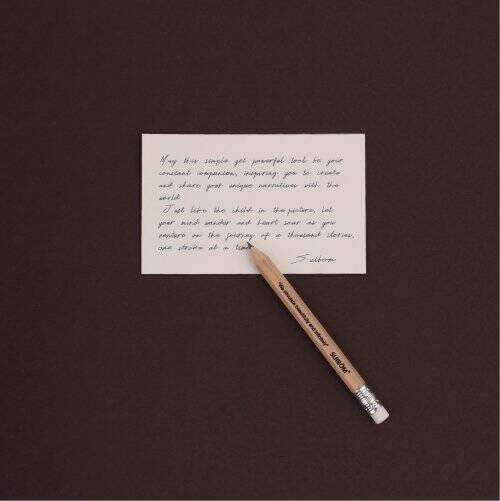 May this simple yet powerful tool be your
constant companion, inspiring you to create
and share your unique narratives with the
world.
Just like the child in the picture, let
your mind wander and heart soar as you
venture on the journey of a thousand stories,
one stroke at a time
"We circulate beautifully and infinitely"